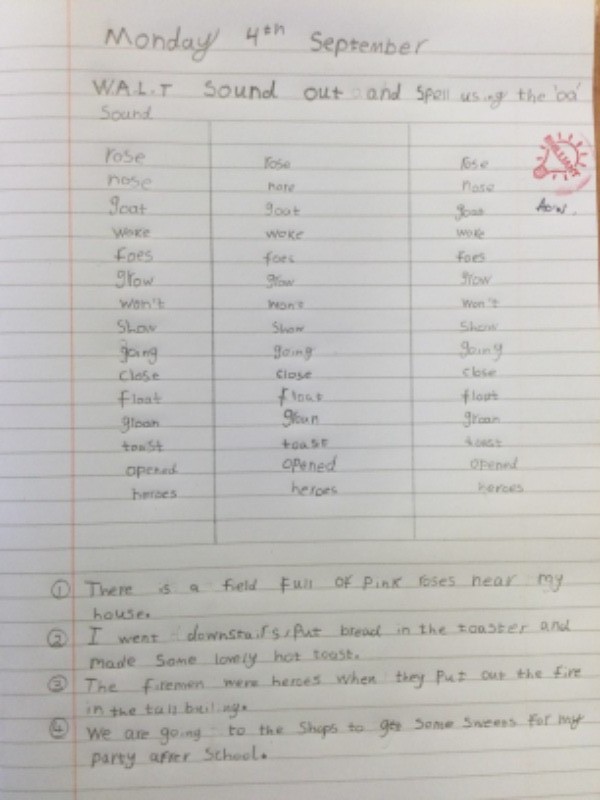 Monday 4th September
W.A.L.T Sound out and spell using the 'oa'
Sound
rose rose rose
nose nose nose
goat goat goat
BRILLIANT
woke woke woke
foes foes foes
grow grow grow
won't won't won't
Show Show Show
going going going
close close close
float float float
groan groan groan
toast toast toast
opened opened opened
heroes heroes heroes
① There is a field full of pink roses near my
house.
② I went downstairs, put bread in the toaster and
made some lovely hot toast.
③ The firemen were heroes when they put out the fire
in the tall builing.
④ We are going to the shops to get some sweets for my
party after school.